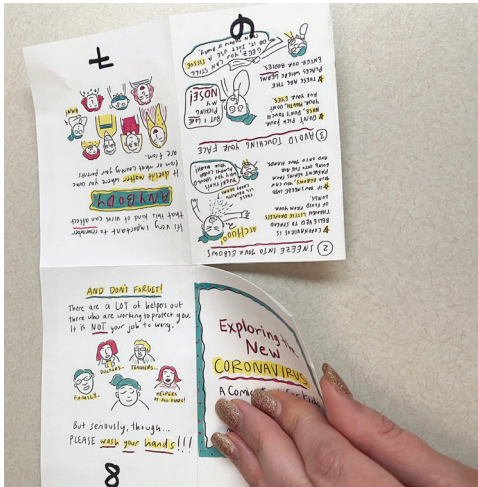 7
It's very important to remember
that this kind of virus can affect
ANYBODY
It doesn't matter where you come
from or what country your parents
are from.
6
② SNEEZE INTO YOUR ELBOWS
CORONAVIRUS IS
BELIEVED TO SPREAD
THROUGH LITTLE DROPLETS
OF FLUID FROM YOUR
LUNGS.
IF YOU SNEEZE INTO
YOUR ELBOWS, YOU CAN
PREVENT GERMS FROM GOING
ONTO YOUR HANDS.
aacHooo!
③ AVOID TOUCHING YOUR FACE
DON'T PICK YOUR
NOSE. DON'T TOUCH
YOUR MOUTH. DON'T
RUB YOUR EYES.
THESE ARE THE
PLACES WHERE GERMS
ENTER OUR BODIES.
BUT I LIKE
PICKING
MY
NOSE!
GEEZ, YOU CAN STILL
DO IT, JUST USE A TISSUE
AND DON'T FORGET!
There are a LOT of helpers out
there who are working to protect you.
It is NOT your job to worry.
DOCTORS..
TEACHERS...
FAMILY..
HELPERS
OF ALL KINDS!
But seriously, though...
PLEASE wash your hands!!!
8
Exploring the
New
CORONAVIRUS
A Comic